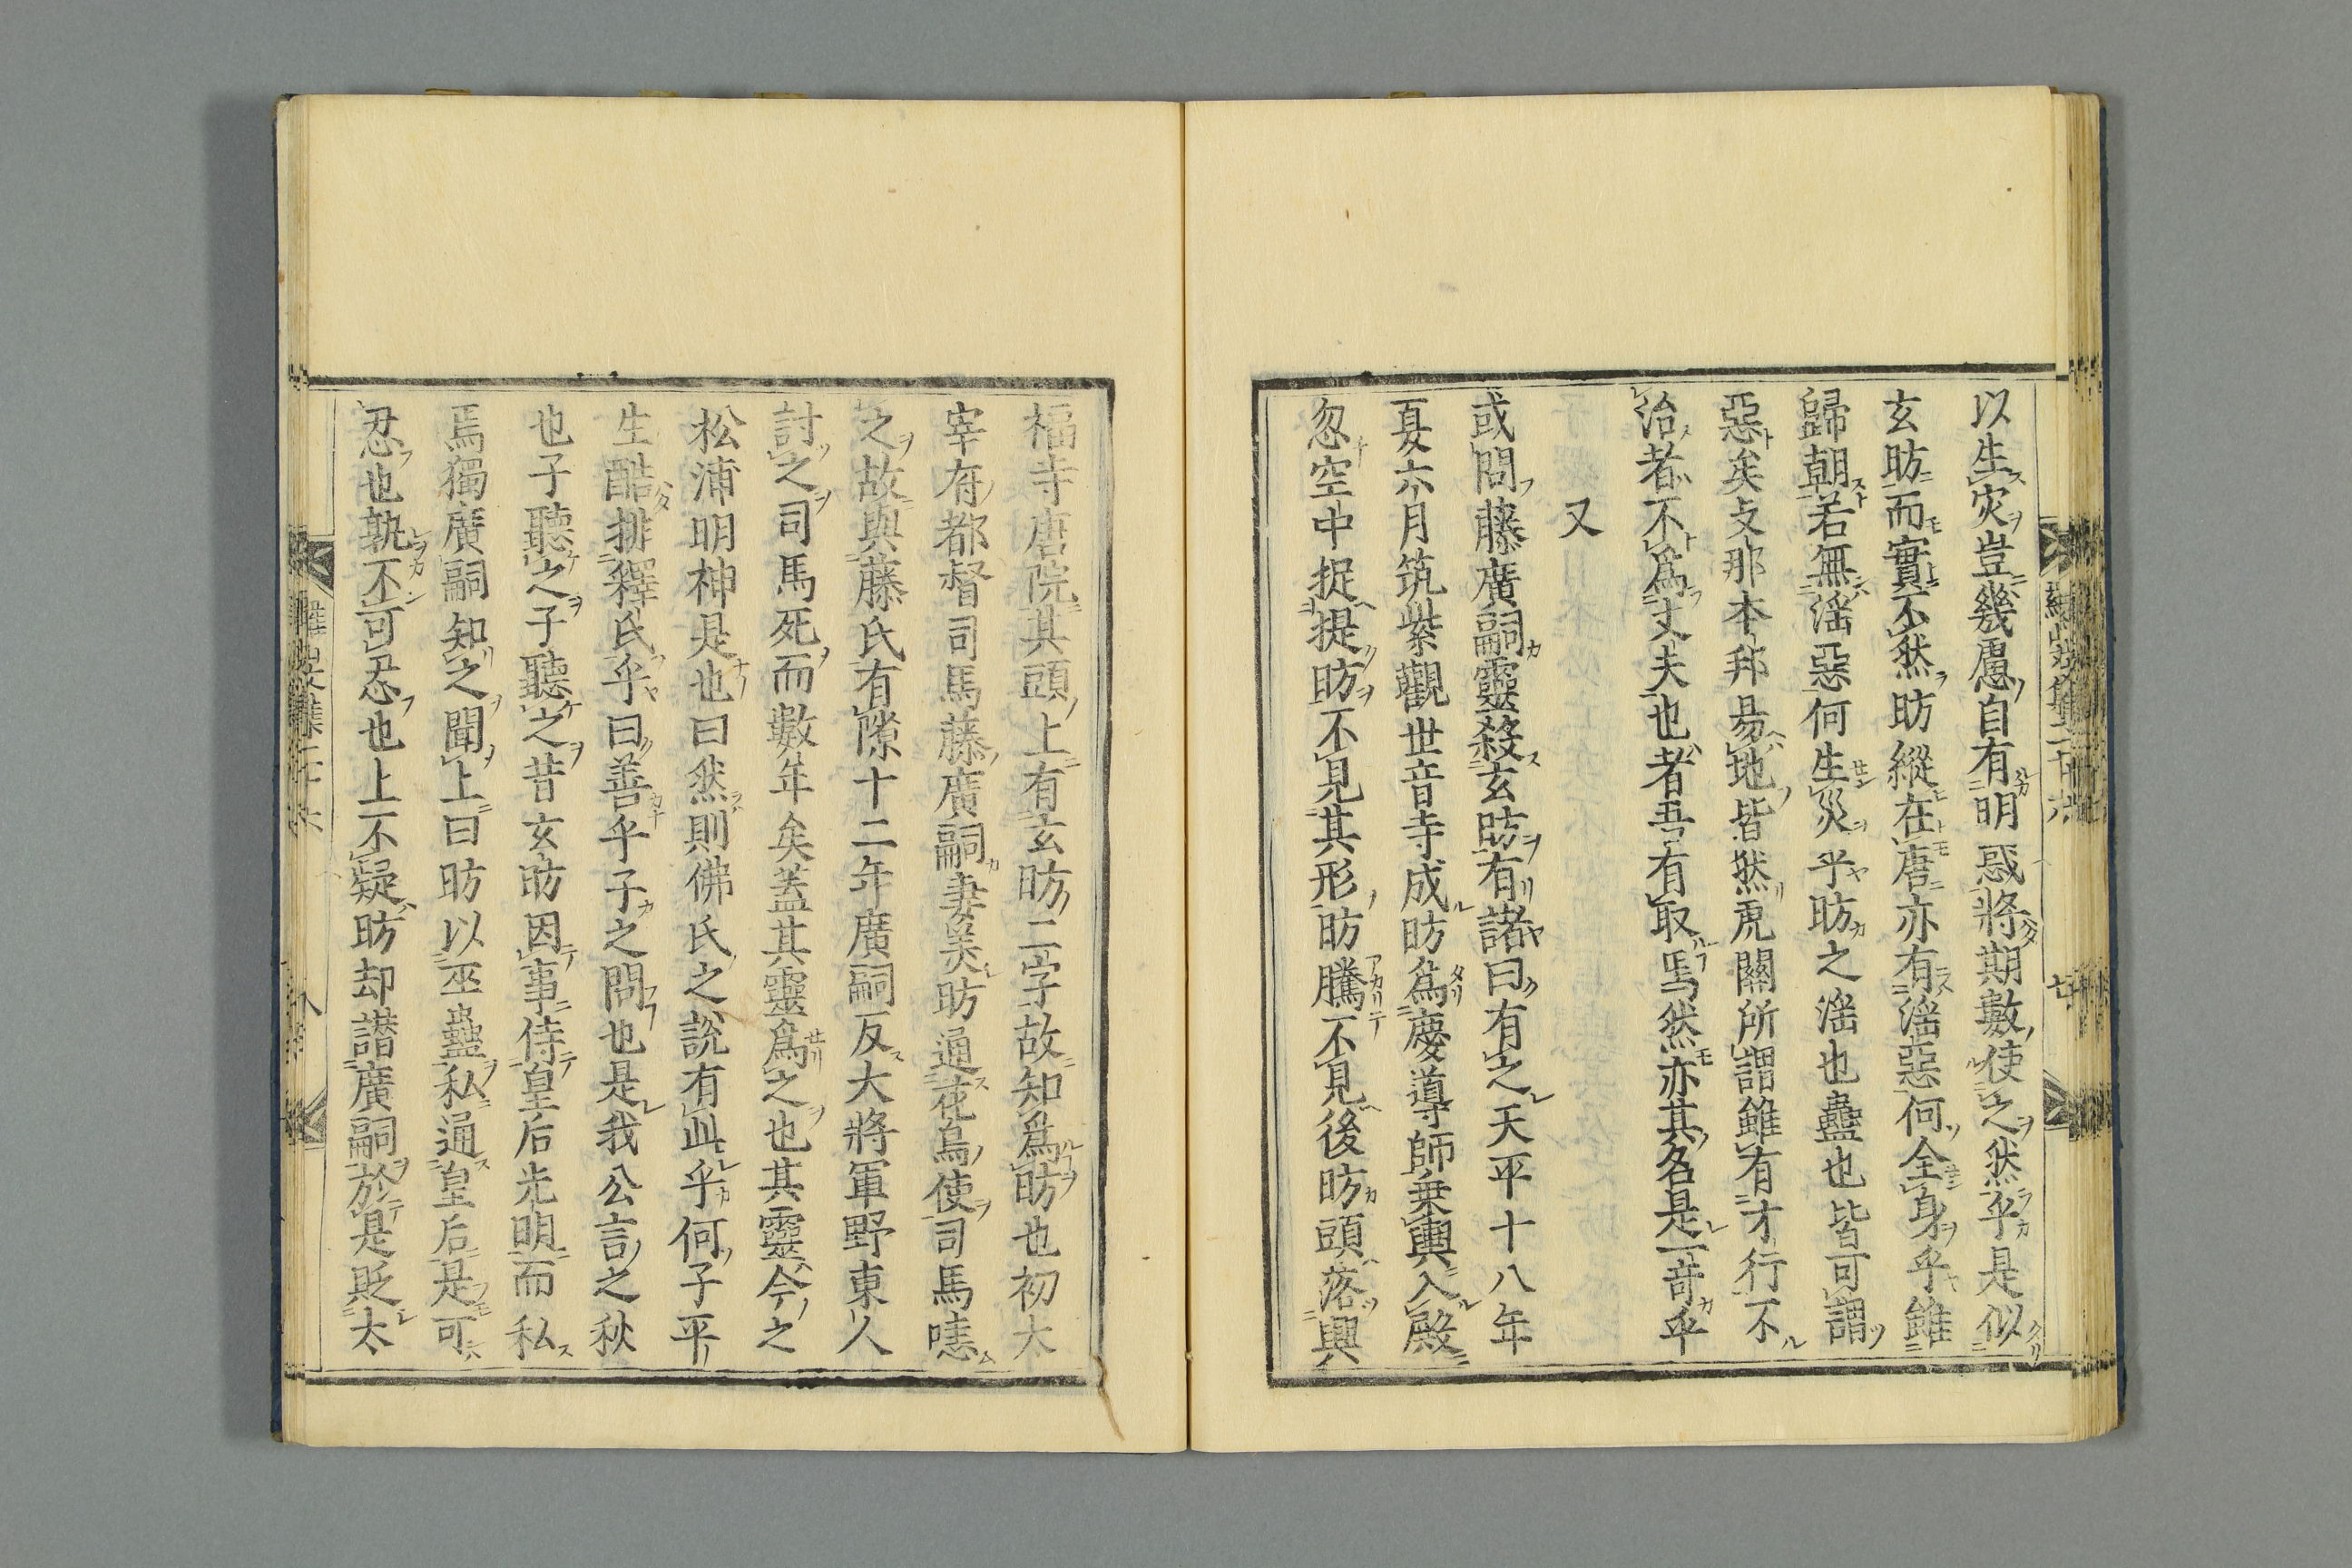 以生灾豈幾慮自有明惑將期數使之然乎是似
玄昉而實不然昉縱在唐亦有淫惡何全身乎雖
歸朝若無淫惡何生災乎昉之淫也蠱也皆可謂
惡矣支那本邦易地皆然虎關所謂雖有才行不
治者不爲丈夫也者吾有取焉然亦其名是奇乎
又
或問藤廣嗣靈殺玄昉有諸曰有之天平十八年
夏六月筑紫觀世音寺成昉爲慶導師乗輿入殿
忽空中捉提昉不見其形昉騰不見後昉頭落興
福寺唐院其頭上有玄昉二字故知爲昉也初太
宰府都督司馬藤廣嗣妻美昉通花鳥使司馬恚
之故與藤氏有隙十二年廣嗣反大將軍野東人
討之司馬死而數年矣蓋其靈爲之也其靈今之
松浦明神是也曰然則佛氏之說有此乎何子平
生酷排釋氏乎曰善乎子之問也是我公言之秋
也子聽之子聽之昔玄昉因事侍皇后光明而私
焉獨廣嗣知之聞上曰昉以巫蠱私通皇后是可
忍也孰不可忍也上不疑昉却譖廣嗣於是貶太